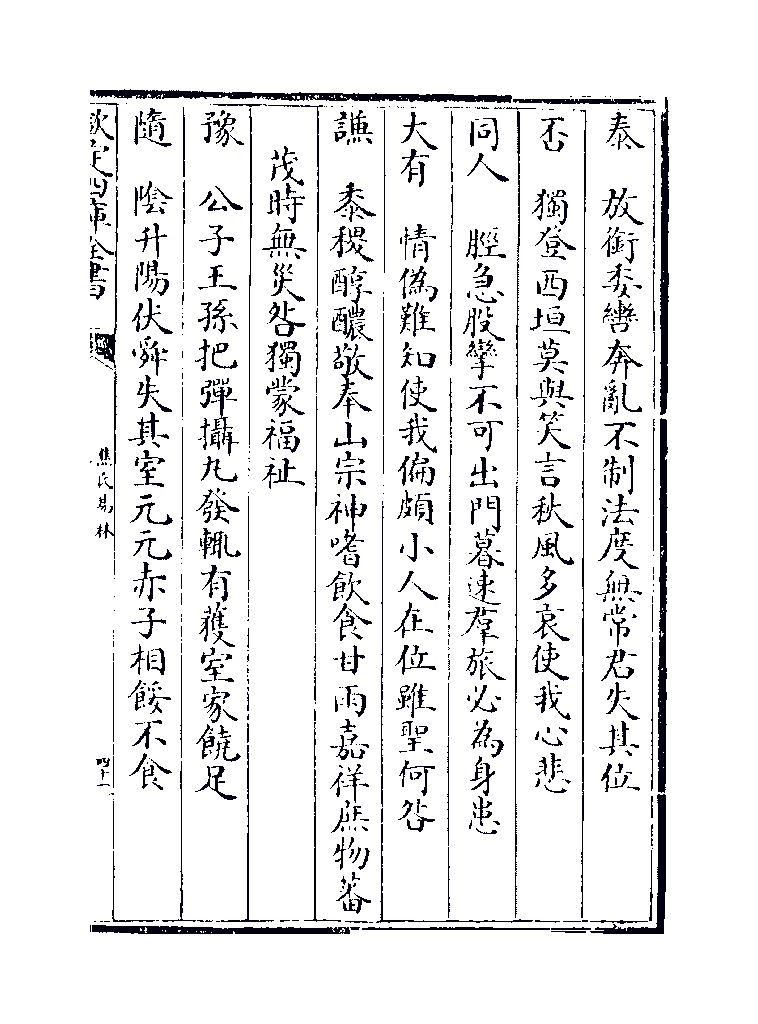 泰　放銜委轡奔亂不制法度無常君失其位
否　獨登西垣莫與笑言秋風多哀使我心悲
同人　脛急股攣不可出門暮速羣旅必為身患
大有　情偽難知使我偏頗小人在位雖聖何咎
謙　黍稷醇醲敬奉山宗神嗜飲食甘雨嘉祥庶物蕃
茂時無災咎獨蒙福祉
豫　公子王孫把彈攝丸發輒有獲室家饒足
隨　陰升陽伏舜失其室元元赤子相餒不食
欽定四庫全書
焦氏易林
四十一